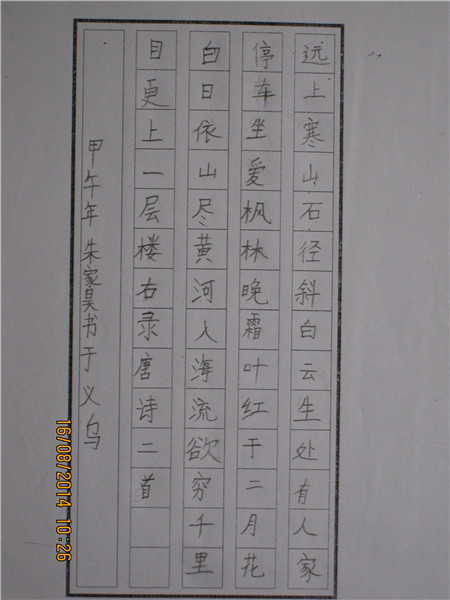 远上寒山石径斜白云生处有人家
停车坐爱枫林晚霜叶红于二月花
白日依山尽黄河入海流欲穷千里
目更上一层楼右录唐诗二首
甲午年朱家昊书于义乌
16/08/2014 10:26